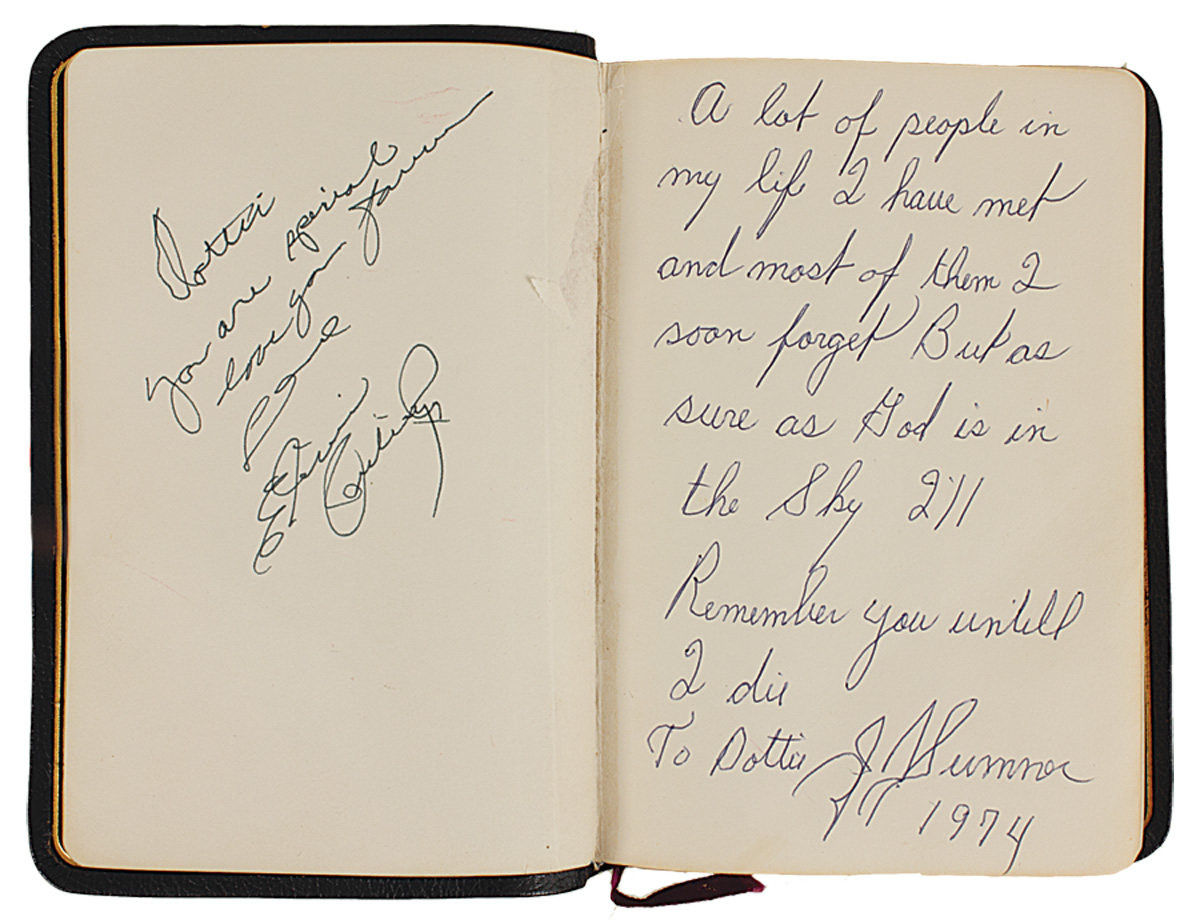 Dottie
you are special
love you
Love
Elvis Presley
A lot of people in
my life I have met
and most of them I
soon forget But as
sure as God is in
the Sky I'll
Remember you untill
I die
To Dottie J D Sumner
1974